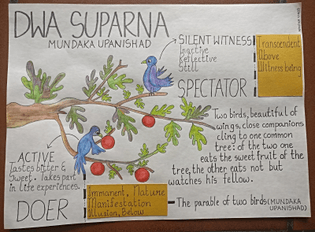 DWA SUPARNA
MUNDAKA UPANISHAD
SILENT WITNESS
Inactive
Reflective
Still
Transcendent
Above
Witness being
SPECTATOR
Two birds, beautiful of
wings, close companions
cling to one common
tree: of the two one
eats the sweet fruit of the
tree, the other eats not but
watches his fellow.
ACTIVE
Tastes bitter &
Sweet. Takes part
in life experiences.
DOER
Immanent, Nature
Manifestation
Illusion, Below
The parable of two birds (MUNDAKA
UPANISHAD)